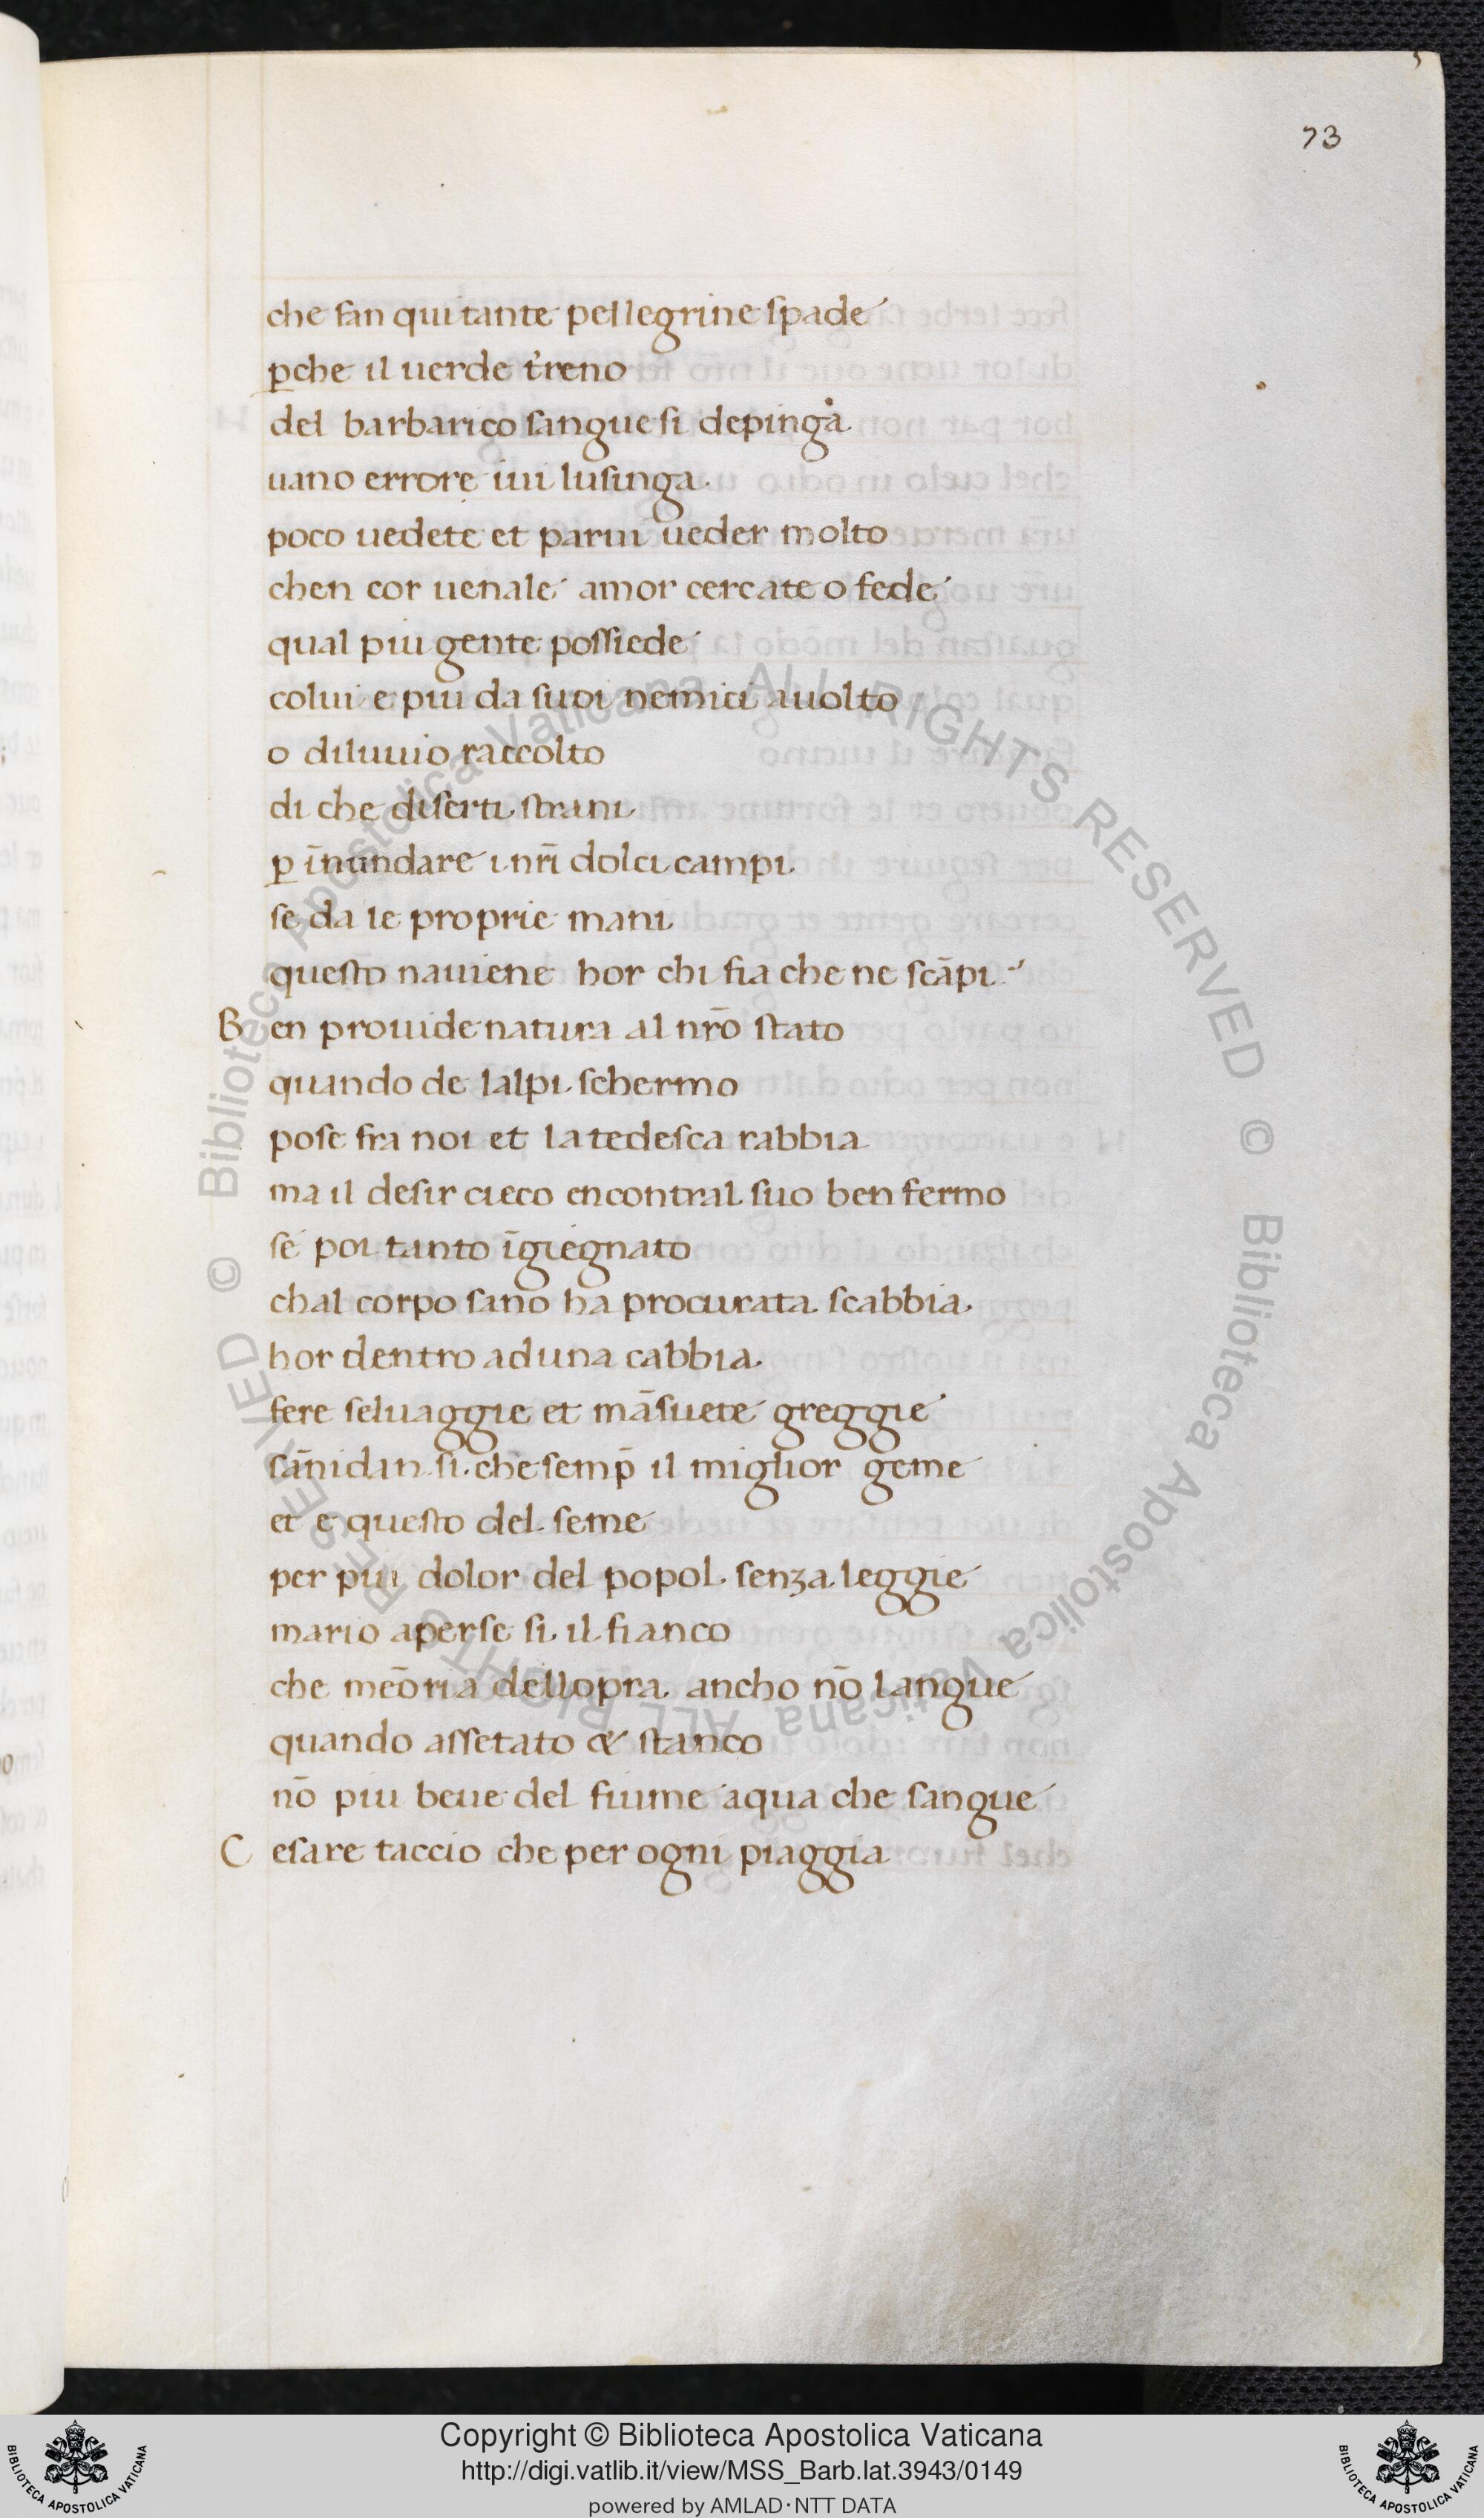 73
che fan qui tante pellegrine spade
ꝑche il uerde t̕reno
del barbarico sangue si depinga
uano errore iui lusinga.
poco uedete et parui ueder molto
chen cor uenale amor cercate o fede
qual piu gente possiede
colui e piu da suoi nemici auolto
o diluuio raccolto
di che diserti strani
ꝑ īnundare i nr̄i dolci campi
se da le proprie mani
questo nauiene hor chi fia che ne scāpi
Ben prouide natura al nr̄o stato
quando de lalpi schermo
pose fra noi et la tedesca rabbia
ma il desir cieco encontral suo ben fermo
se poi tanto īgiegnato
chal corpo sano ha procurata scabbia.
hor dentro aduna cabbia
fere seluaggie et māsuete greggie
sānidan si. che semp̄ il miglior geme
et e questo del seme
per piu dolor del popol senza leggie
mario aperse si il fianco
che meōria dellopra ancho nō langue
quando assetato & stanco
nō piu beue del fiume aqua che sangue
Cesare taccio che per ogni piaggia
© Biblioteca Apostolica Vaticana ALL RIGHTS RESERVED © Biblioteca Apostolica Vaticana ALL RIGHTS RESERVED
Copyright © Biblioteca Apostolica Vaticana
http://digi.vatlib.it/view/MSS_Barb.lat.3943/0149
powered by AMLAD·NTT DATA
BIBLIOTECA APOSTOLICA VATICANA
BIBLIOTECA APOSTOLICA VATICANA